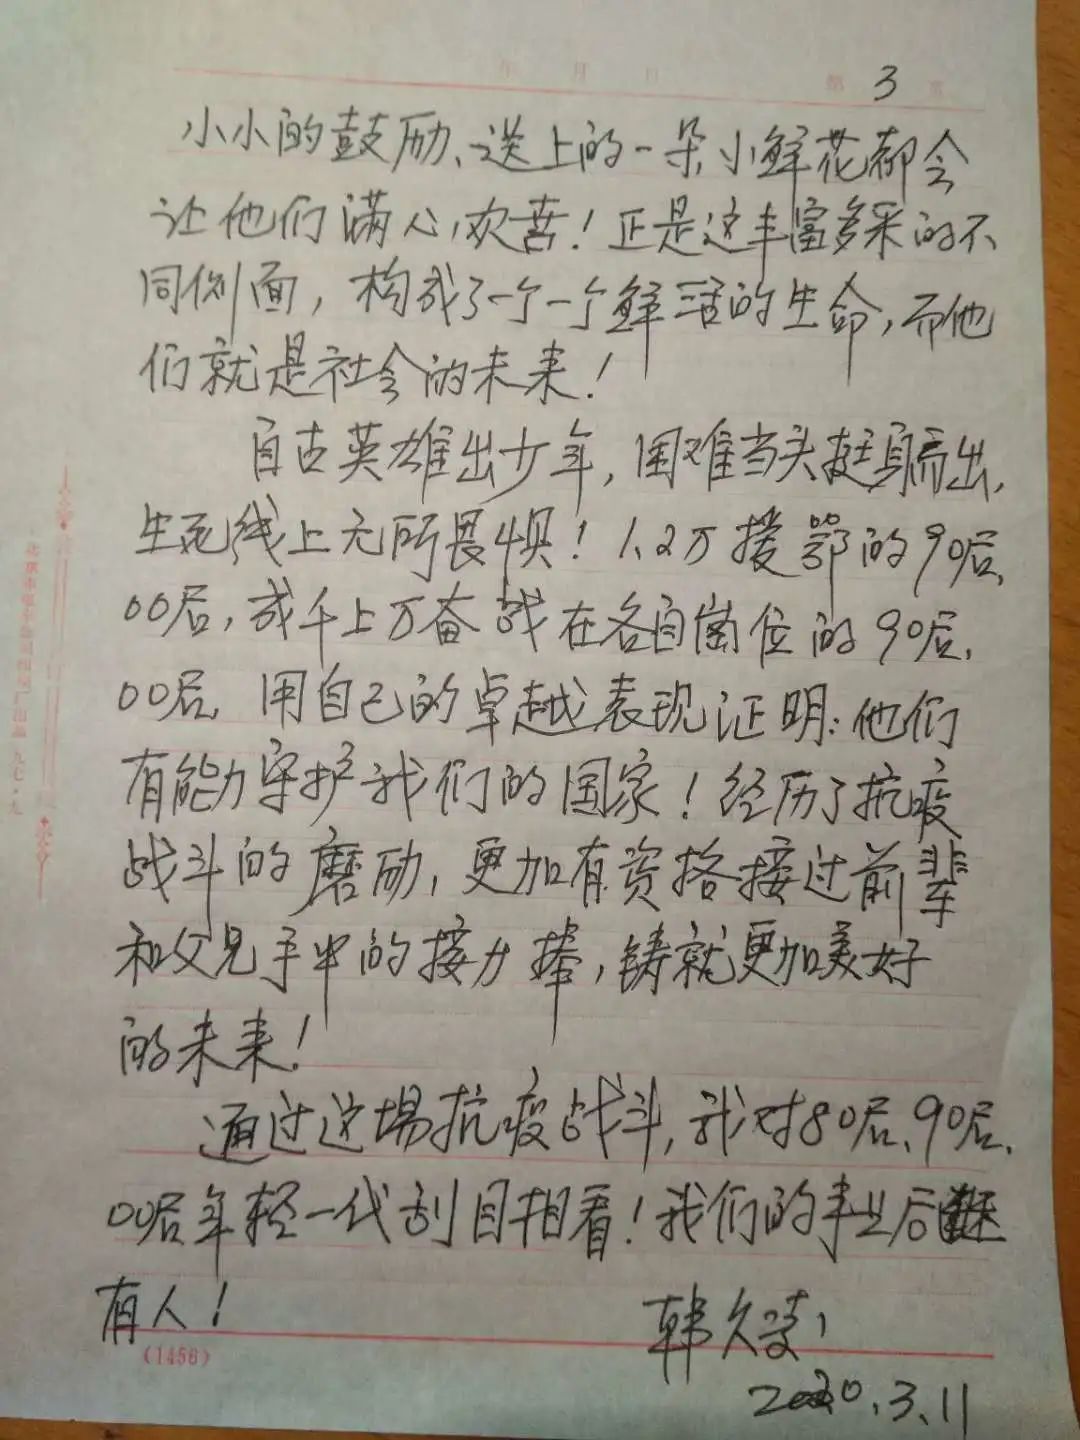 年 月 日 第 3 页
小小的鼓励、送上的一朵小鲜花都会
让他们满心欢喜！正是这丰富多采的不
同侧面，构成了一个一个鲜活的生命，而他
们就是社会的未来！
自古英雄出少年，困难当头挺身而出，
生死线上无所畏惧！1.2万援鄂的90后、
00后，成千上万奋战在各自岗位的90后、
00后，用自己的卓越表现证明：他们
有能力守护我们的国家！经历了抗疫
战斗的磨励，更加有资格接过前辈
和父兄手中的接力捧，铸就更加美好
的未来！
通过这場抗疫战斗，我对80后、90后、
00后年轻一代刮目相看！我们的事业后继
有人！
韩久
2020.3.11
(1456)